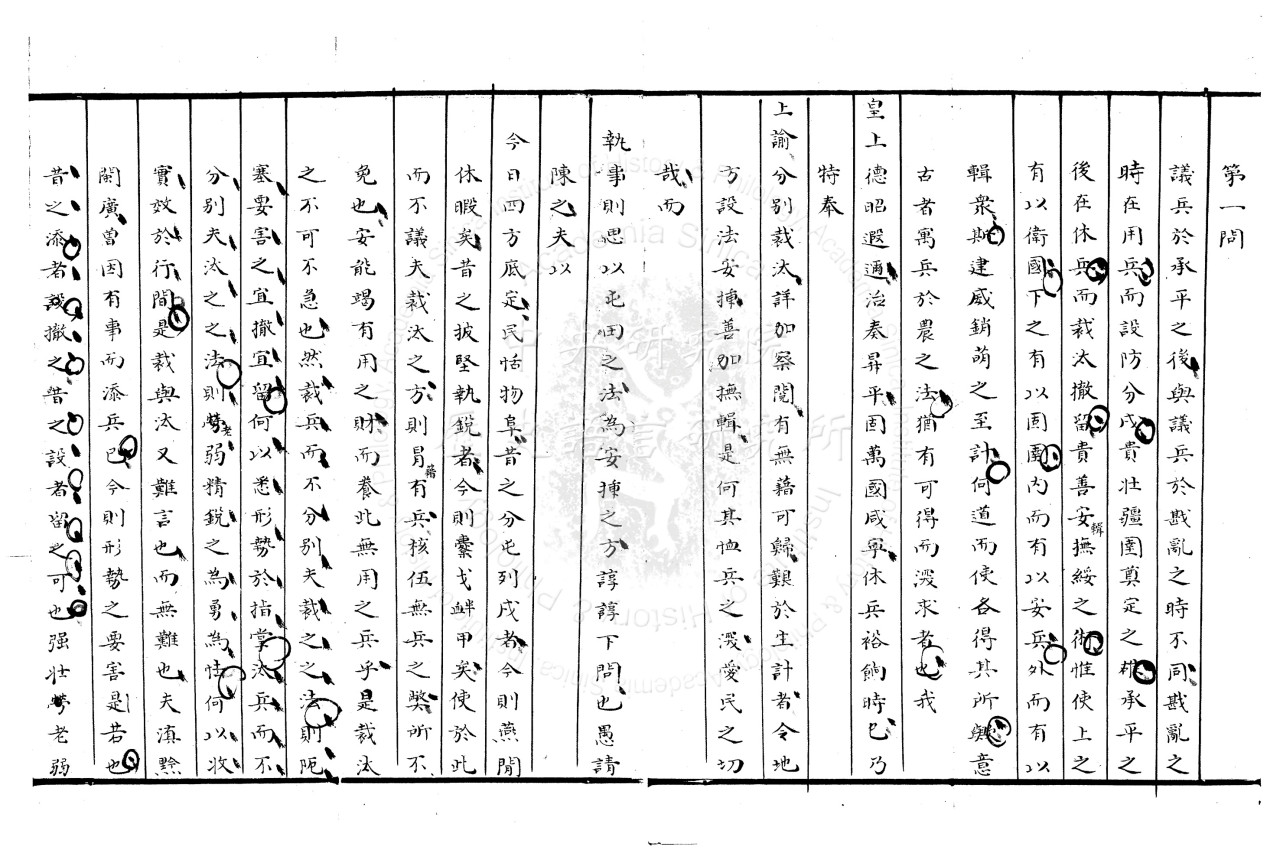 第一問
議兵於承平之後與議兵於戡亂之時不同戡亂之
時在用兵而設防分戍貴壯疆圉奠定之雄承平之
後在休兵而裁太撤留貴善安撫輯綏之術惟使上之
有以衛國下之有以固圉內而有以安兵外而有以
輯衆斯建威銷萌之至計何道而使各得其所歟意
古者寓兵於農之法猶有可得而深求者也我
皇上德昭遐邇治奏昇平固萬國咸寧休兵裕餉時已乃
特奉
上諭分別裁汰詳加察閱有無藉可歸艱於生計者令地
方設法安揷善加撫輯是何其恤兵之深愛民之切
哉而
執事則思以屯田之法為安揷之方諄諄下問也愚請
陳之夫以
今日四方底定民恬物阜昔之分屯列戍者今則燕閒
休暇矣昔之披堅執銳者今則櫜戈衅甲矣使於此
而不議夫裁汰之方則冐籍有兵核伍無兵之獘所不
免也安能竭有用之財而養此無用之兵乎是裁汰
之不可不急也然裁兵而不分別夫裁之之法則阨
塞要害之宜撤宜留何以悉形勢於指掌汰兵而不
分別夫汰之之法則老弱精銳之為勇為怯何以收
實效於行間是裁與汰又難言也而無難也夫滇黔
閩廣曽因有事而添兵已今則形勢之要害是若也
昔之添者設撤之昔之設者留之可也强壯老弱